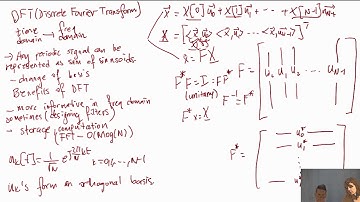 DFT (Discrete Fourier Transform)
time → freq
domain domain
→ Any periodic signal can be
represented as sum of sinusoids.
- change of
Benefits of DFT
- more informative in freq domain
sometimes (designing filters)
- storage, computation
(FFT - O(N log N))
u_k[t] = 1/√N e^{j 2π/N kt} k = 0, ..., N-1
u_k's form an orthogonal basis.
x⃗ = X[0] u⃗_0 + X[1] u⃗_1 + ... + X[N-1] u⃗_{N-1}
X⃗ = [<x⃗, u⃗_0> <x⃗, u⃗_1> ... <x⃗, u⃗_{N-1}>]^T
x = F X
F*F = I = FF*
(unitary) F^{-1} = F*
F* x = X
F = [ u_0 u_1 u_2 ... u_{N-1} ]
F* =